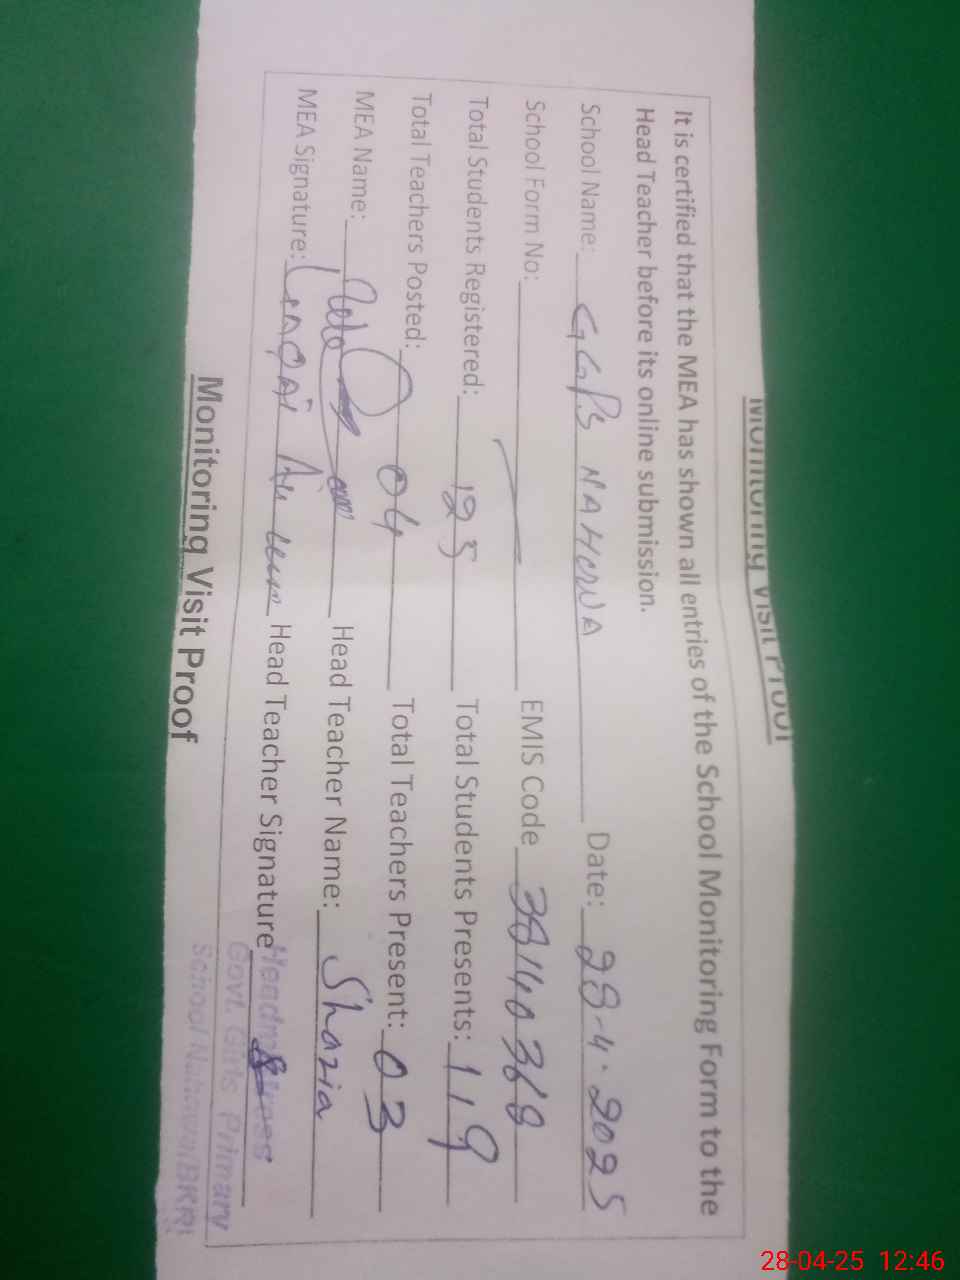 Monitoring Visit Proof
It is certified that the MEA has shown all entries of the School Monitoring Form to the
Head Teacher before its online submission.
School Name: GGPS NAHOWA Date: 28-4-2025
School Form No: EMIS Code 38140368
Total Students Registered: 125 Total Students Presents: 119
Total Teachers Posted: 04 Total Teachers Present: 03
MEA Name: Head Teacher Name: Shazia
MEA Signature: Head Teacher Signature
Headmistress
Govt. Girls Primary
School
Monitoring Visit Proof
28-04-25 12:46